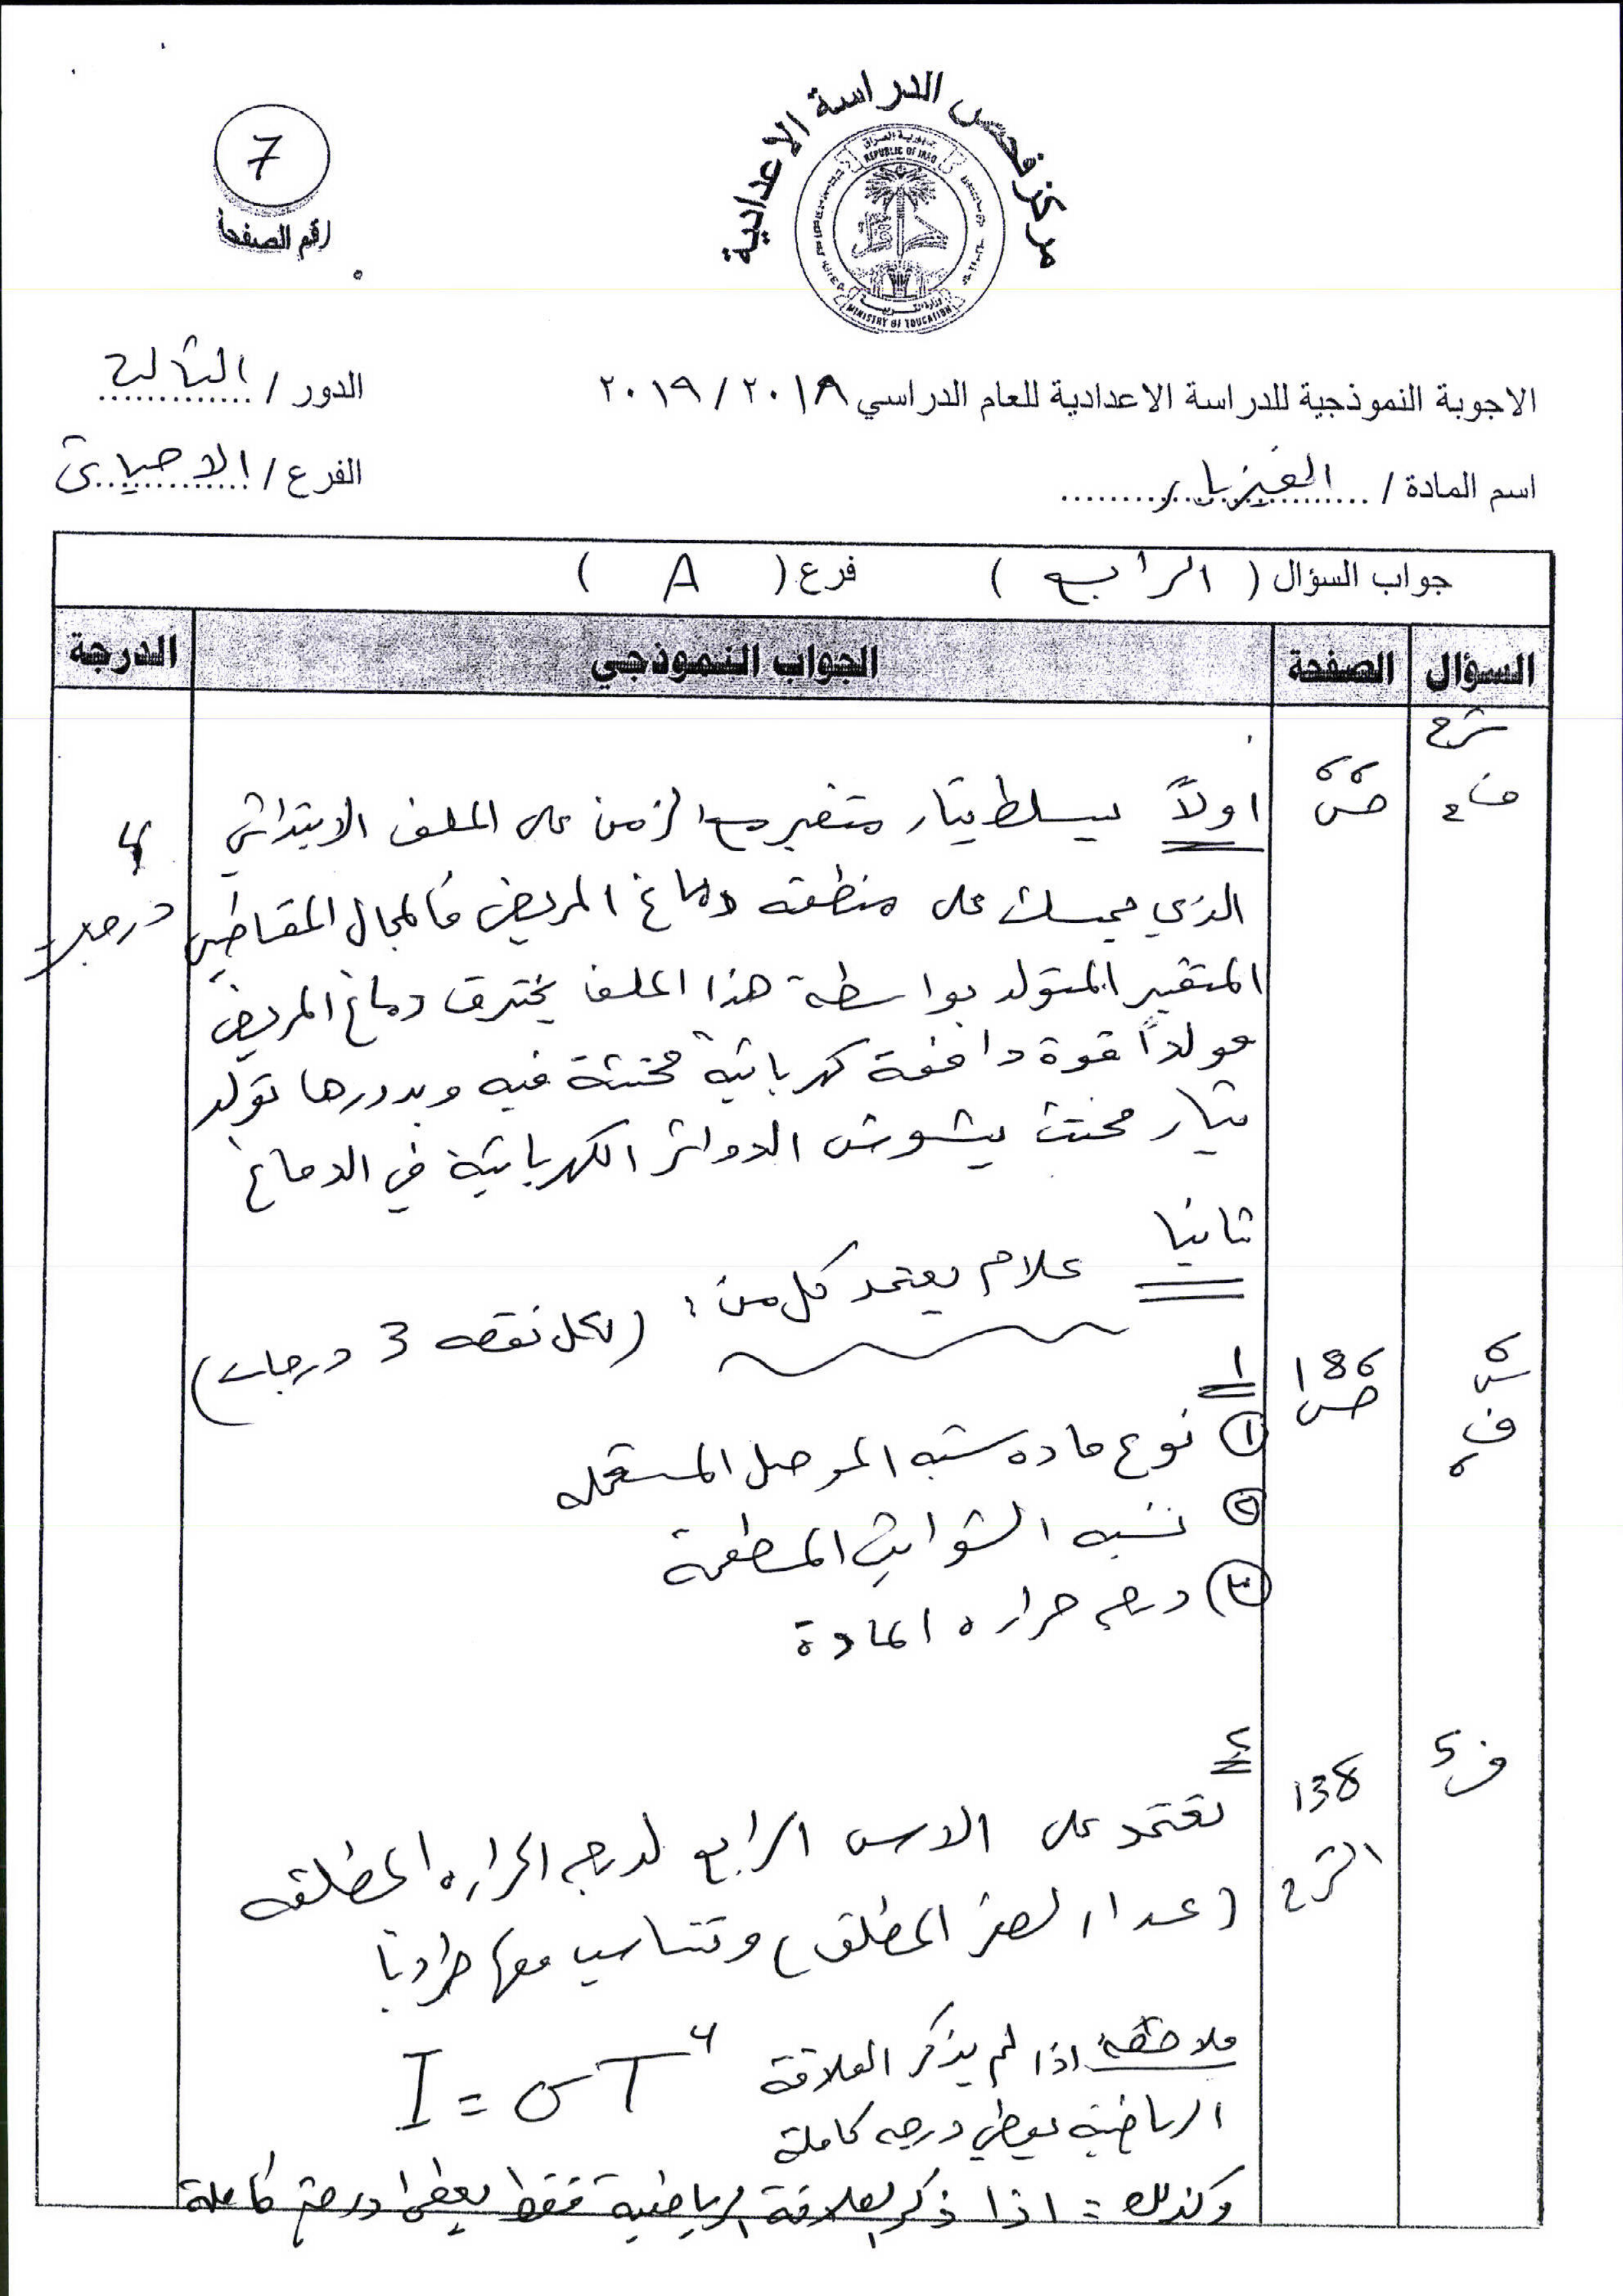 مركز فحص الدراسة الاعدادية
جمهورية العراق
REPUBLIC OF IRAQ
MINISTRY OF EDUCATION
7
رقم الصفحة
الاجوبة النموذجية للدراسة الاعدادية للعام الدراسي ٢٠١٨ / ٢٠١٩
الدور / الثالث
اسم المادة / الفيزياء
الفرع / الاحيائي
جواب السؤال ( الرابع ) فرع ( A )
السؤال الصفحة الجواب النموذجي الدرجة
شرح
ف٢
ص٦٦
اولاً يسلط تيار متغير مع الزمن على الملف الابتدائي
4 درجات
الذي يمسك على منطقة دماغ المريض فالمجال المغناطيسي
المتغير المتولد بواسطة هذا الملف يخترق دماغ المريض
مولداً قوة دافعة كهربائية محتثة فيه وبدورها تولد
تيار محتث يشوش الدوائر الكهربائية في الدماغ
ثانيا علام يعتمد كل من : (لكل نقطه 3 درجات)
١
ص 186
① نوع ماده شبه الموصل المستعمله
② نسبه الشوائب المطعمة
③ درجه حراره المادة
٢
ف5
138
الشرح
تعتمد على الاس الرابع لدرجه الحراره المطلقه
(عدا الصفر المطلق) وتتناسب معها طرديا
ملاحظة اذا لم يذكر العلاقة I = σT⁴
الرياضية يعطى درجه كاملة
وكذلك : اذا ذكر العلاقة الرياضية فقط يعطى درجة كاملة